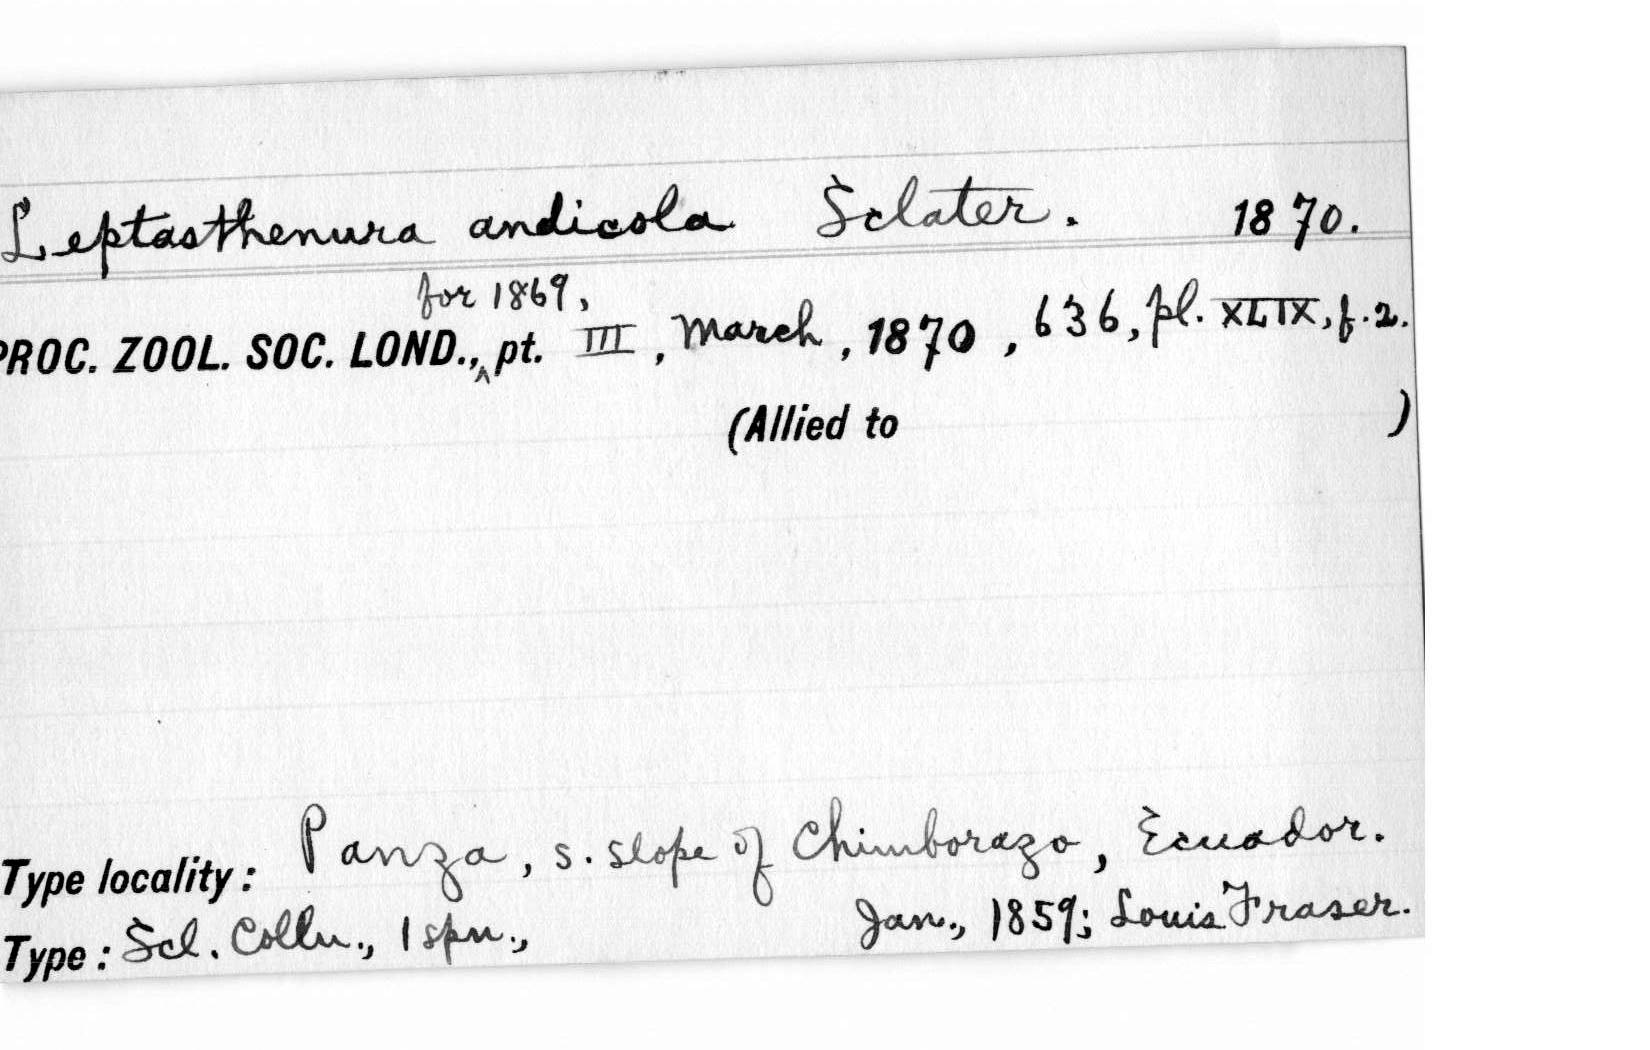 Leptasthenura andicola Sclater. 1870.
for 1869,
PROC. ZOOL. SOC. LOND.,^ pt. III, March, 1870, 636, pl. XLIX, f. 2.
(Allied to )
Type locality: Panza, s. slope of Chimborazo, Ecuador.
Type: Scl. Colln., 1 spn., Jan., 1859; Louis Fraser.